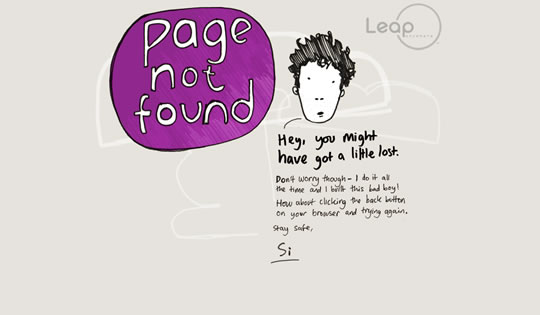 page
not
found
Leap
Hey, you might
have got a little lost.
Don't worry though - I do it all
the time and I built this bad boy!
How about clicking the back button
on your browser and trying again.
Stay safe,
Si